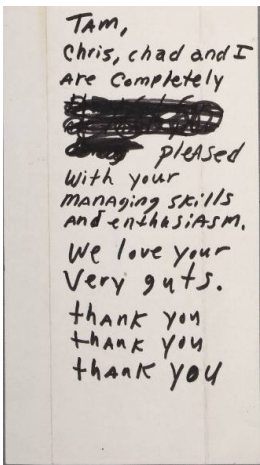 TAM,
Chris, chad and I
Are Completely
pleAsed
with your
mAnAging skills
And enthusiAsm.
We love your
Very guts.
thAnk you
thAnk you
thAnk you